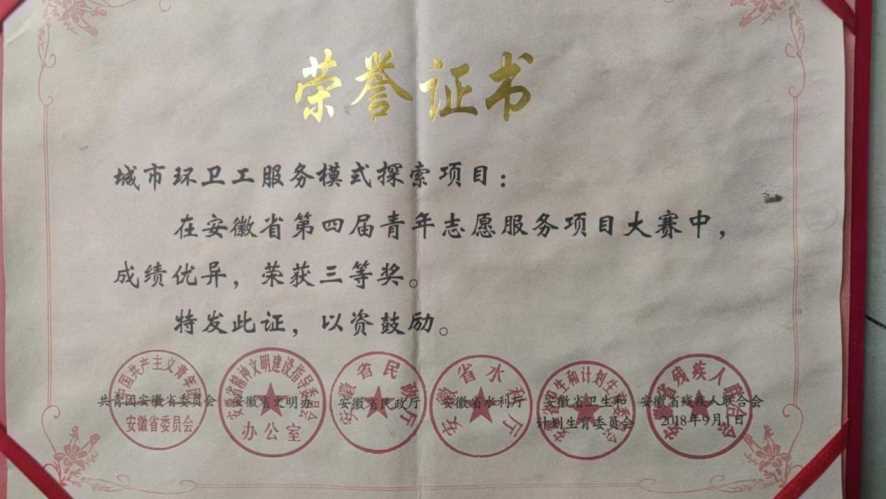 荣誉证书
城市环卫工服务模式探索项目：
在安徽省第四届青年志愿服务项目大赛中，
成绩优异，荣获三等奖。
特发此证，以资鼓励。
共青团安徽省委员会 安徽省文明办 安徽省民政厅 安徽省水利厅 安徽省卫生和计划生育委员会 安徽省残疾人联合会
2018年9月
中国共产主义青年团
安徽省委员会
安徽省精神文明建设指导委员会
办公室
安徽省民政厅
安徽省水利厅